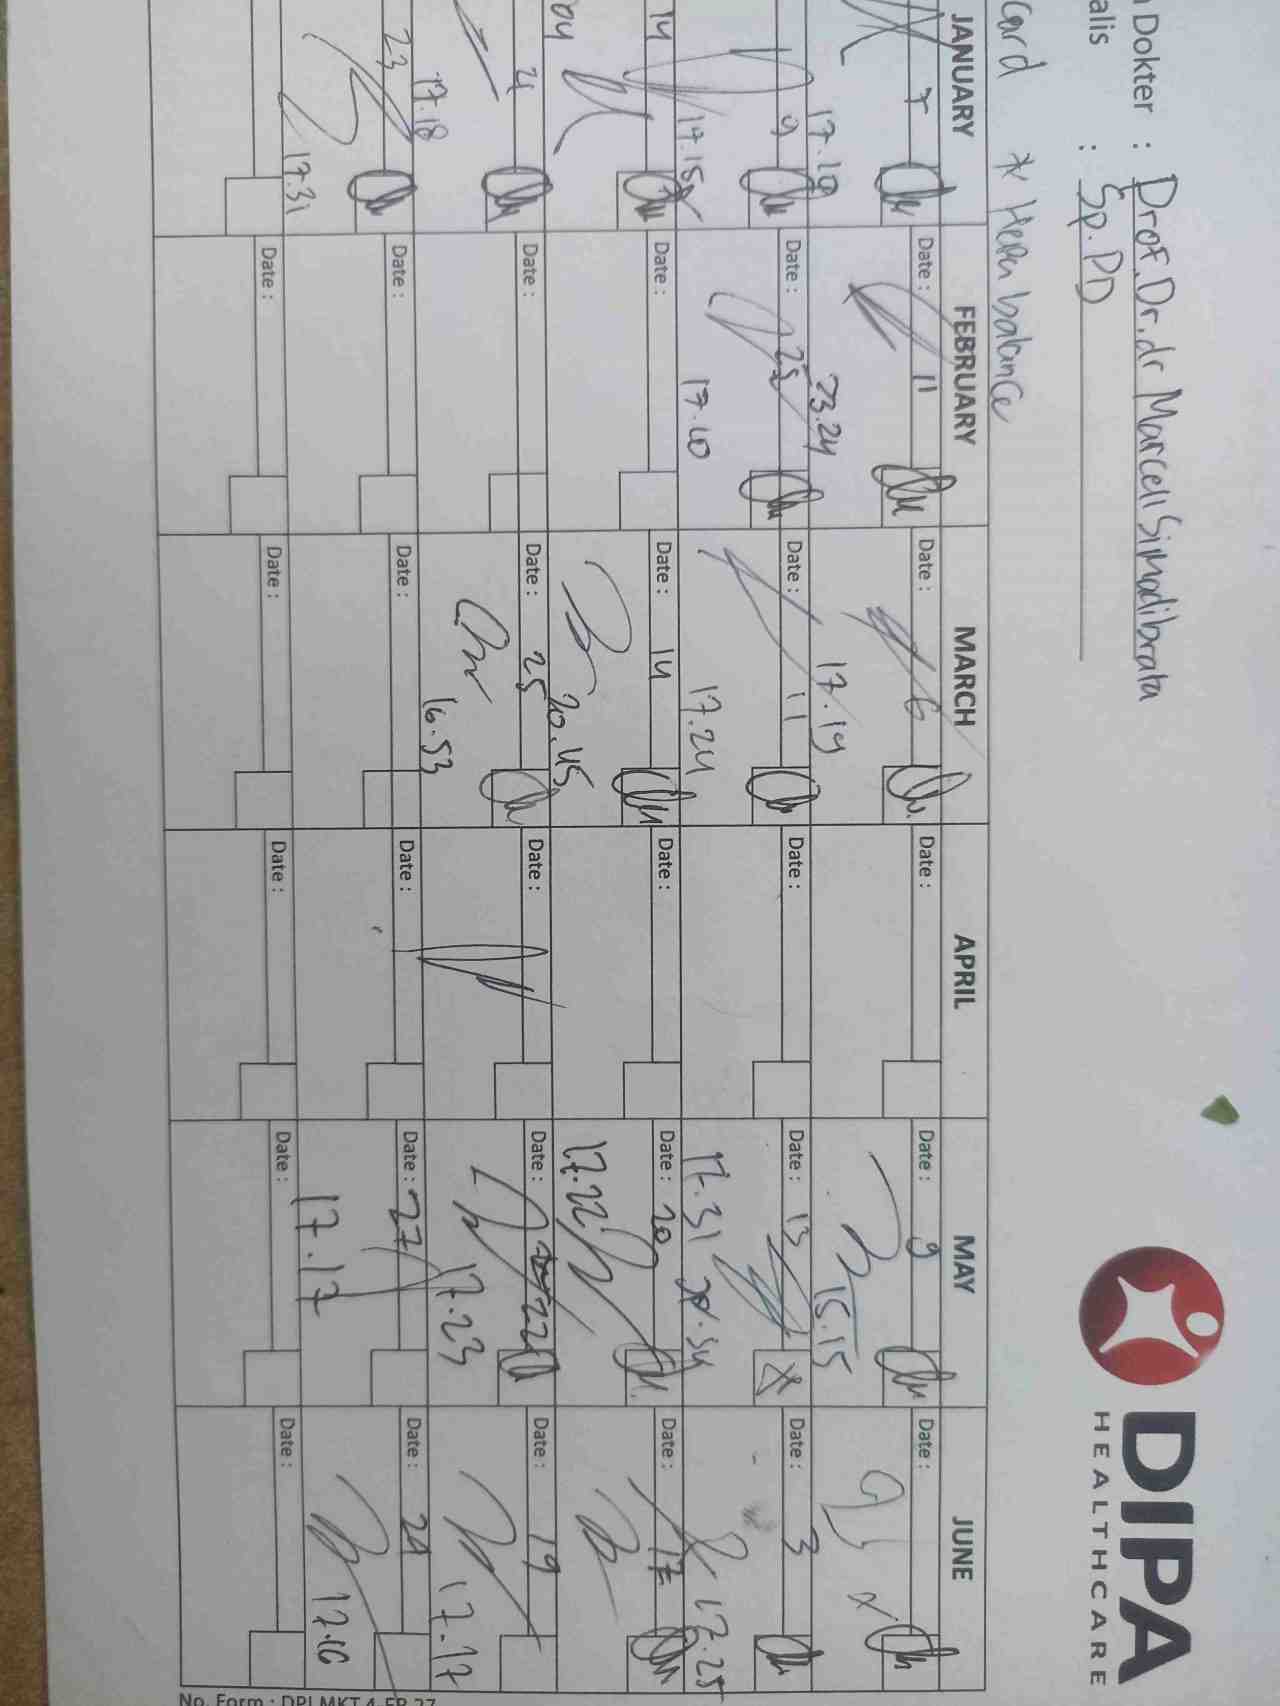 DIPA
HEALTHCARE
Dokter : Prof. Dr. dr Marcell Simadibrata
alis : Sp.PD
card * Hepa balance
JANUARY FEBRUARY MARCH APRIL MAY JUNE
7 Date : 11 Date : 6 Date : Date : 9 Date :
17.19 23.24 17.19 15.15
9 Date : 25 Date : 11 Date : Date : 13 Date : 3
17.15 17.10 17.24 17.31 17.25
14 Date : Date : 14 Date : Date : 20 Date : 17
20.45 17.22
21 Date : Date : 25 Date : Date : 22 Date : 19
17.18 16.53 17.23 17.17
23 Date : Date : Date : Date : 27 Date : 24
17.31 17.17 17.10
Date : Date : Date : Date : Date :
No. Form : DPI.MKT.4.FR.27